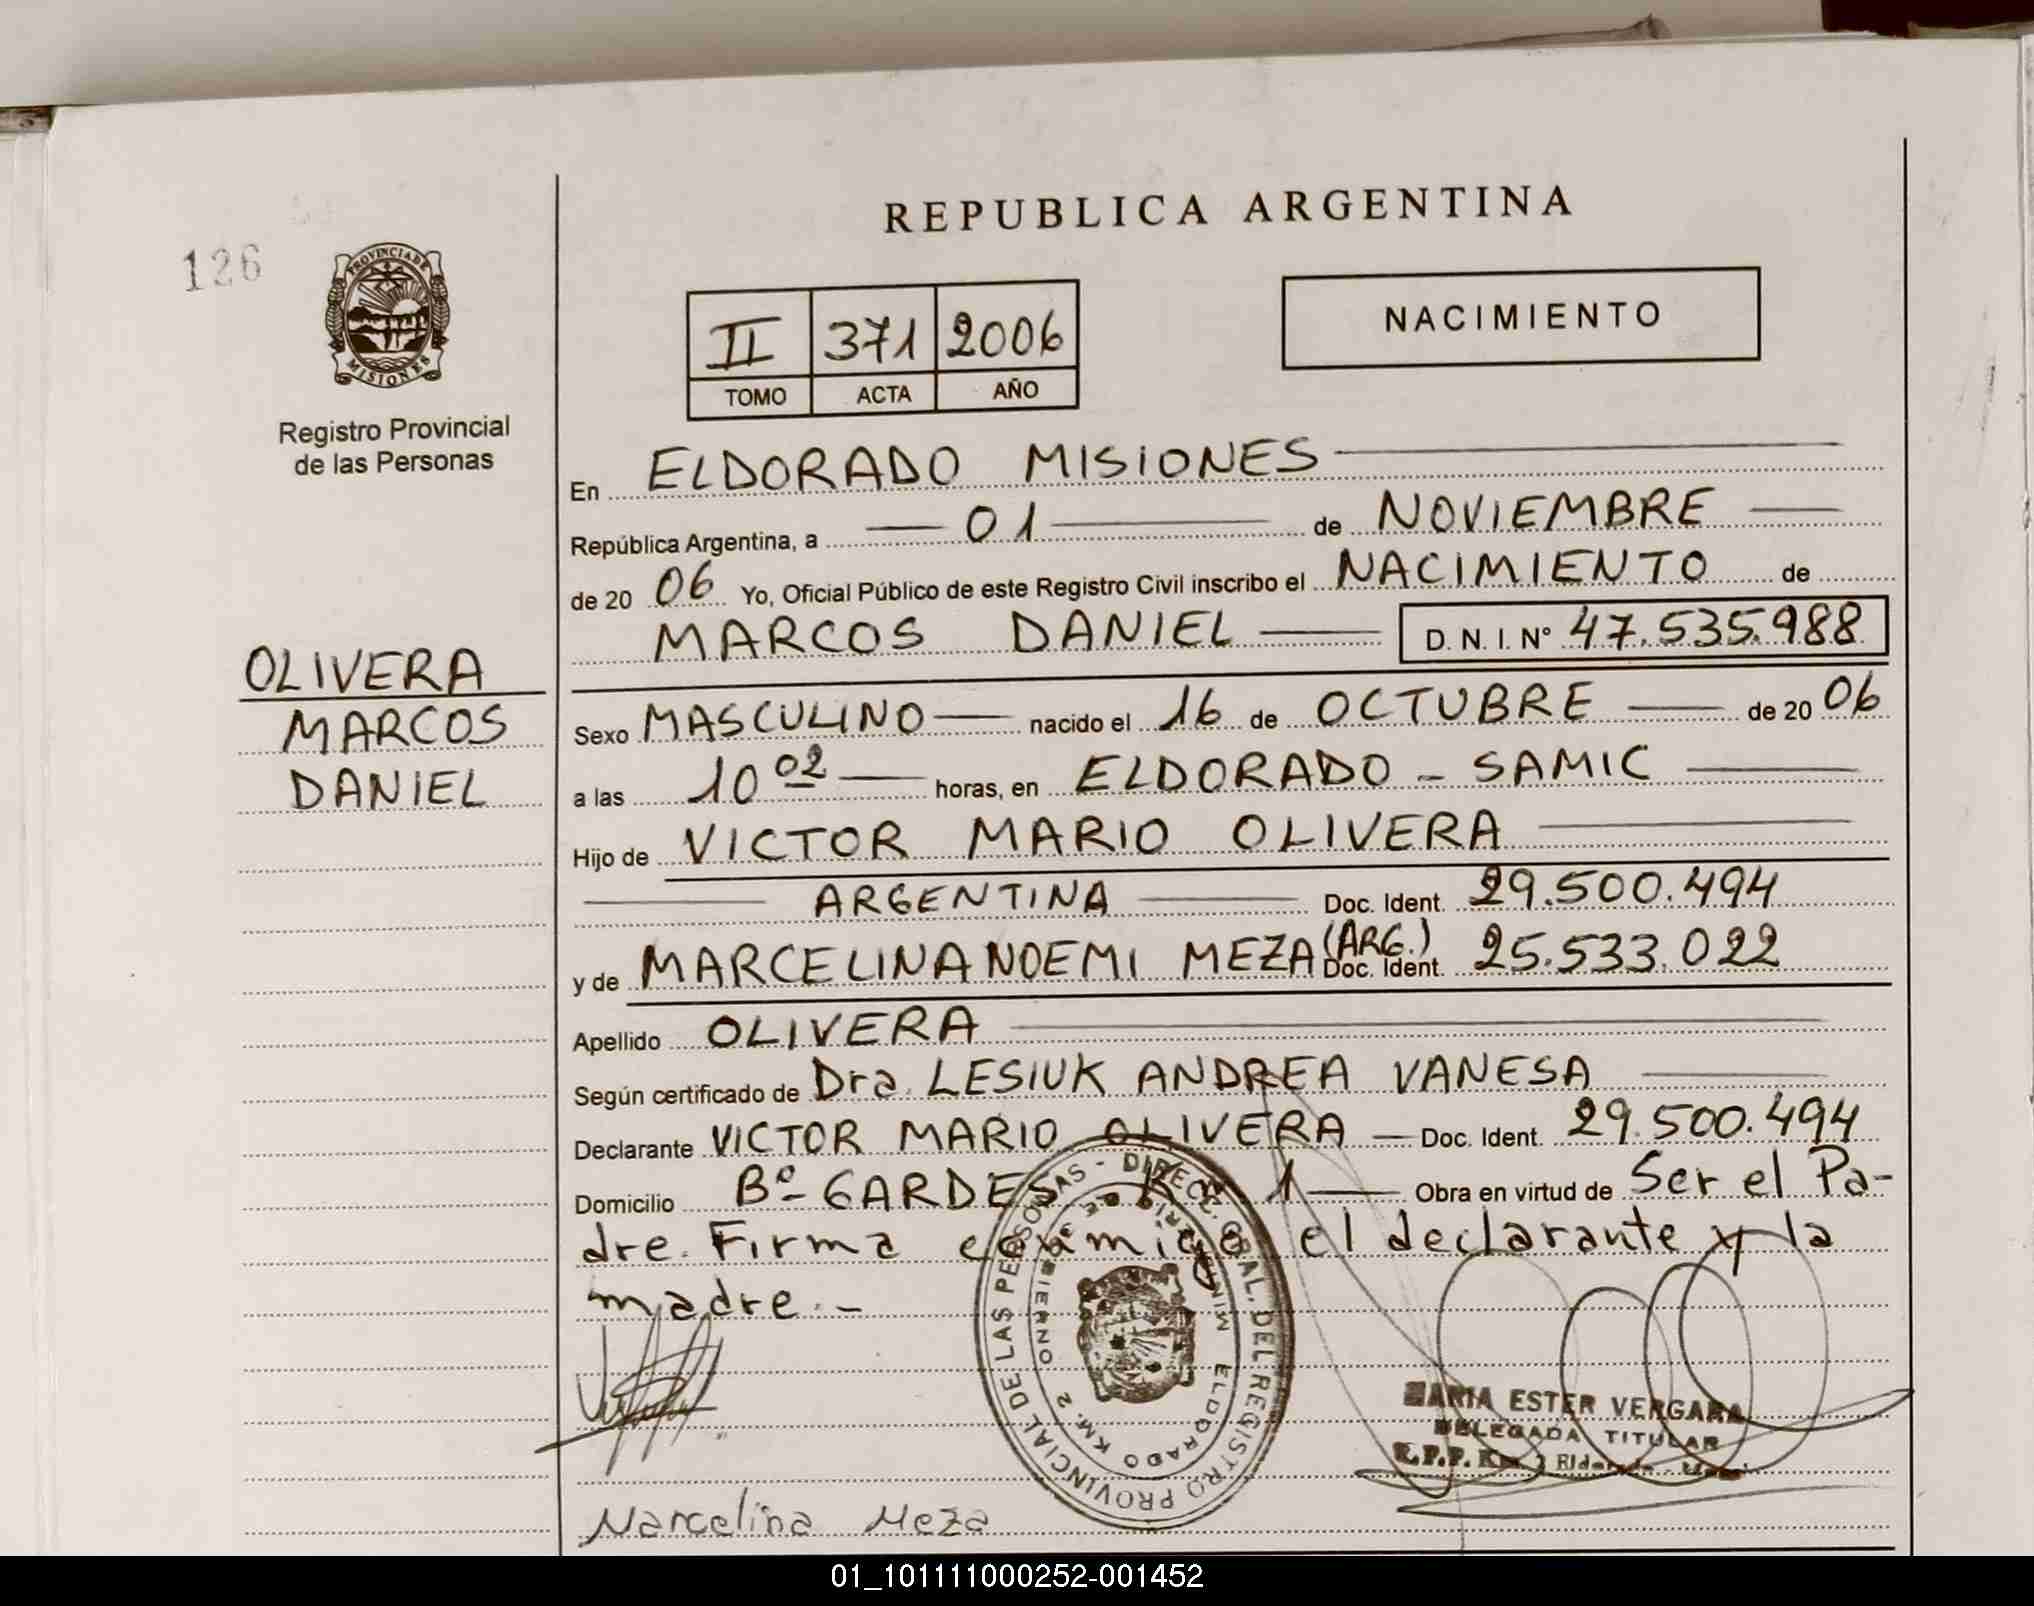 REPUBLICA ARGENTINA
126
PROVINCIA DE MISIONES
Registro Provincial
de las Personas
II 371 2006
TOMO ACTA AÑO
NACIMIENTO
En ELDORADO MISIONES
República Argentina, a 01 de NOVIEMBRE
de 20 06 Yo, Oficial Público de este Registro Civil inscribo el NACIMIENTO de
MARCOS DANIEL D.N.I. Nº 47.535.988
OLIVERA
MARCOS
DANIEL
Sexo MASCULINO nacido el 16 de OCTUBRE de 20 06
a las 10 02 horas, en ELDORADO - SAMIC
Hijo de VICTOR MARIO OLIVERA
ARGENTINA Doc. Ident. 29.500.494
y de MARCELINA NOEMI MEZA (ARG.) Doc. Ident. 25.533.022
Apellido OLIVERA
Según certificado de Dra. LESIUK ANDREA VANESA
Declarante VICTOR MARIO OLIVERA - Doc. Ident. 29.500.494
Domicilio Bº- GARDES Km 1 Obra en virtud de Ser el Pa-
dre. Firma conmigo el declarante y la
madre.-
DIRECC. GRAL. DEL REGISTRO PROVINCIAL DE LAS PERSONAS -
ELDORADO KM. 2
MARIA ESTER VERGARA
DELEGADA TITULAR
Marcelina Meza
01_101111000252-001452